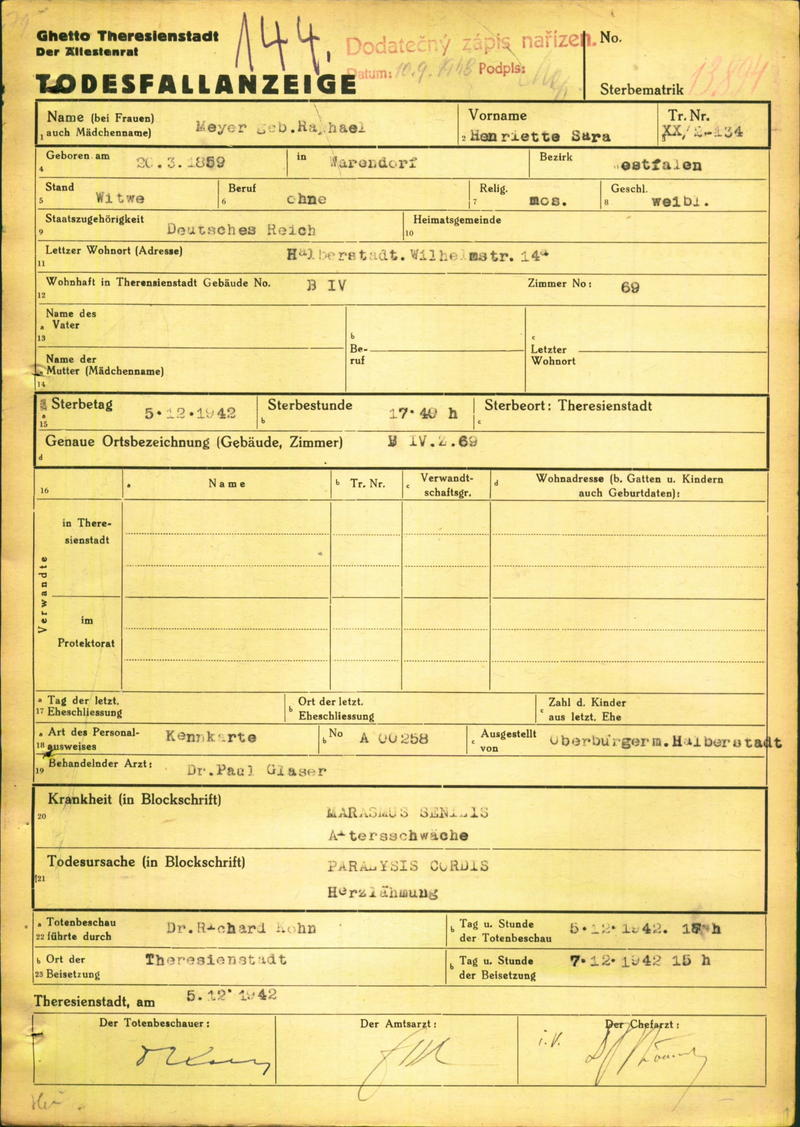 Ghetto Theresienstadt
Der Ältestenrat
144.
Dodatečný zápis nařízen.
Datum: 10.9.1948 Podpis:
No.
TODESFALLANZEIGE
Sterbematrik 13894
Name (bei Frauen)
1 auch Mädchenname)
Meyer geb.Raphael
Vorname
2 Henriette Sara
Tr. Nr.
3 XX/2-134
Geboren am
4 20.3.1859
in Warendorf
Bezirk
Westfalen
Stand
5 Witwe
Beruf
6 ohne
Relig.
7 mos.
Geschl.
8 weibl.
Staatszugehörigkeit
9 Deutsches Reich
Heimatsgemeinde
10
Lettzer Wohnort (Adresse)
11 Halberstadt.Wilhelmstr.14
Wohnhaft in Therensienstadt Gebäude No. B IV
12
Zimmer No: 69
Name des
a Vater
13
b
Be-
ruf
c
Letzter
Wohnort
Name der
Mutter (Mädchenname)
14
Sterbetag
a
15 5.12.1942
Sterbestunde
b 17.40 h
Sterbeort: Theresienstadt
c
Genaue Ortsbezeichnung (Gebäude, Zimmer) B IV.Z.69
d
16
a Name
b Tr. Nr.
c Verwandt-
schaftsgr.
d Wohnadresse (b. Gatten u. Kindern
auch Geburtdaten):
Verwandte
in There-
sienstadt
im
Protektorat
a Tag der letzt.
17 Eheschliessung
b Ort der letzt.
Eheschliessung
c Zahl d. Kinder
aus letzt. Ehe
a Art des Personal-
18 ausweises
Kennkarte
b No A 00258
c Ausgestellt
von
Oberbürgerm.Halberstadt
Behandelnder Arzt:
19 Dr.Paul Glaser
Krankheit (in Blockschrift)
20
MARASMUS SENILIS
Altersschwäche
Todesursache (in Blockschrift)
21
PARALYSIS CORDIS
Herzlähmung
a Totenbeschau
22 führte durch
Dr.Richard Kohn
b Tag u. Stunde
der Totenbeschau
5.12.1942. h
b Ort der
23 Beisetzung
Theresienstadt
b Tag u. Stunde
der Beisetzung
7.12.1942 15 h
Theresienstadt, am 5.12.1942
Der Totenbeschauer:
Der Amtsarzt:
Der Chefarzt:
i.V.